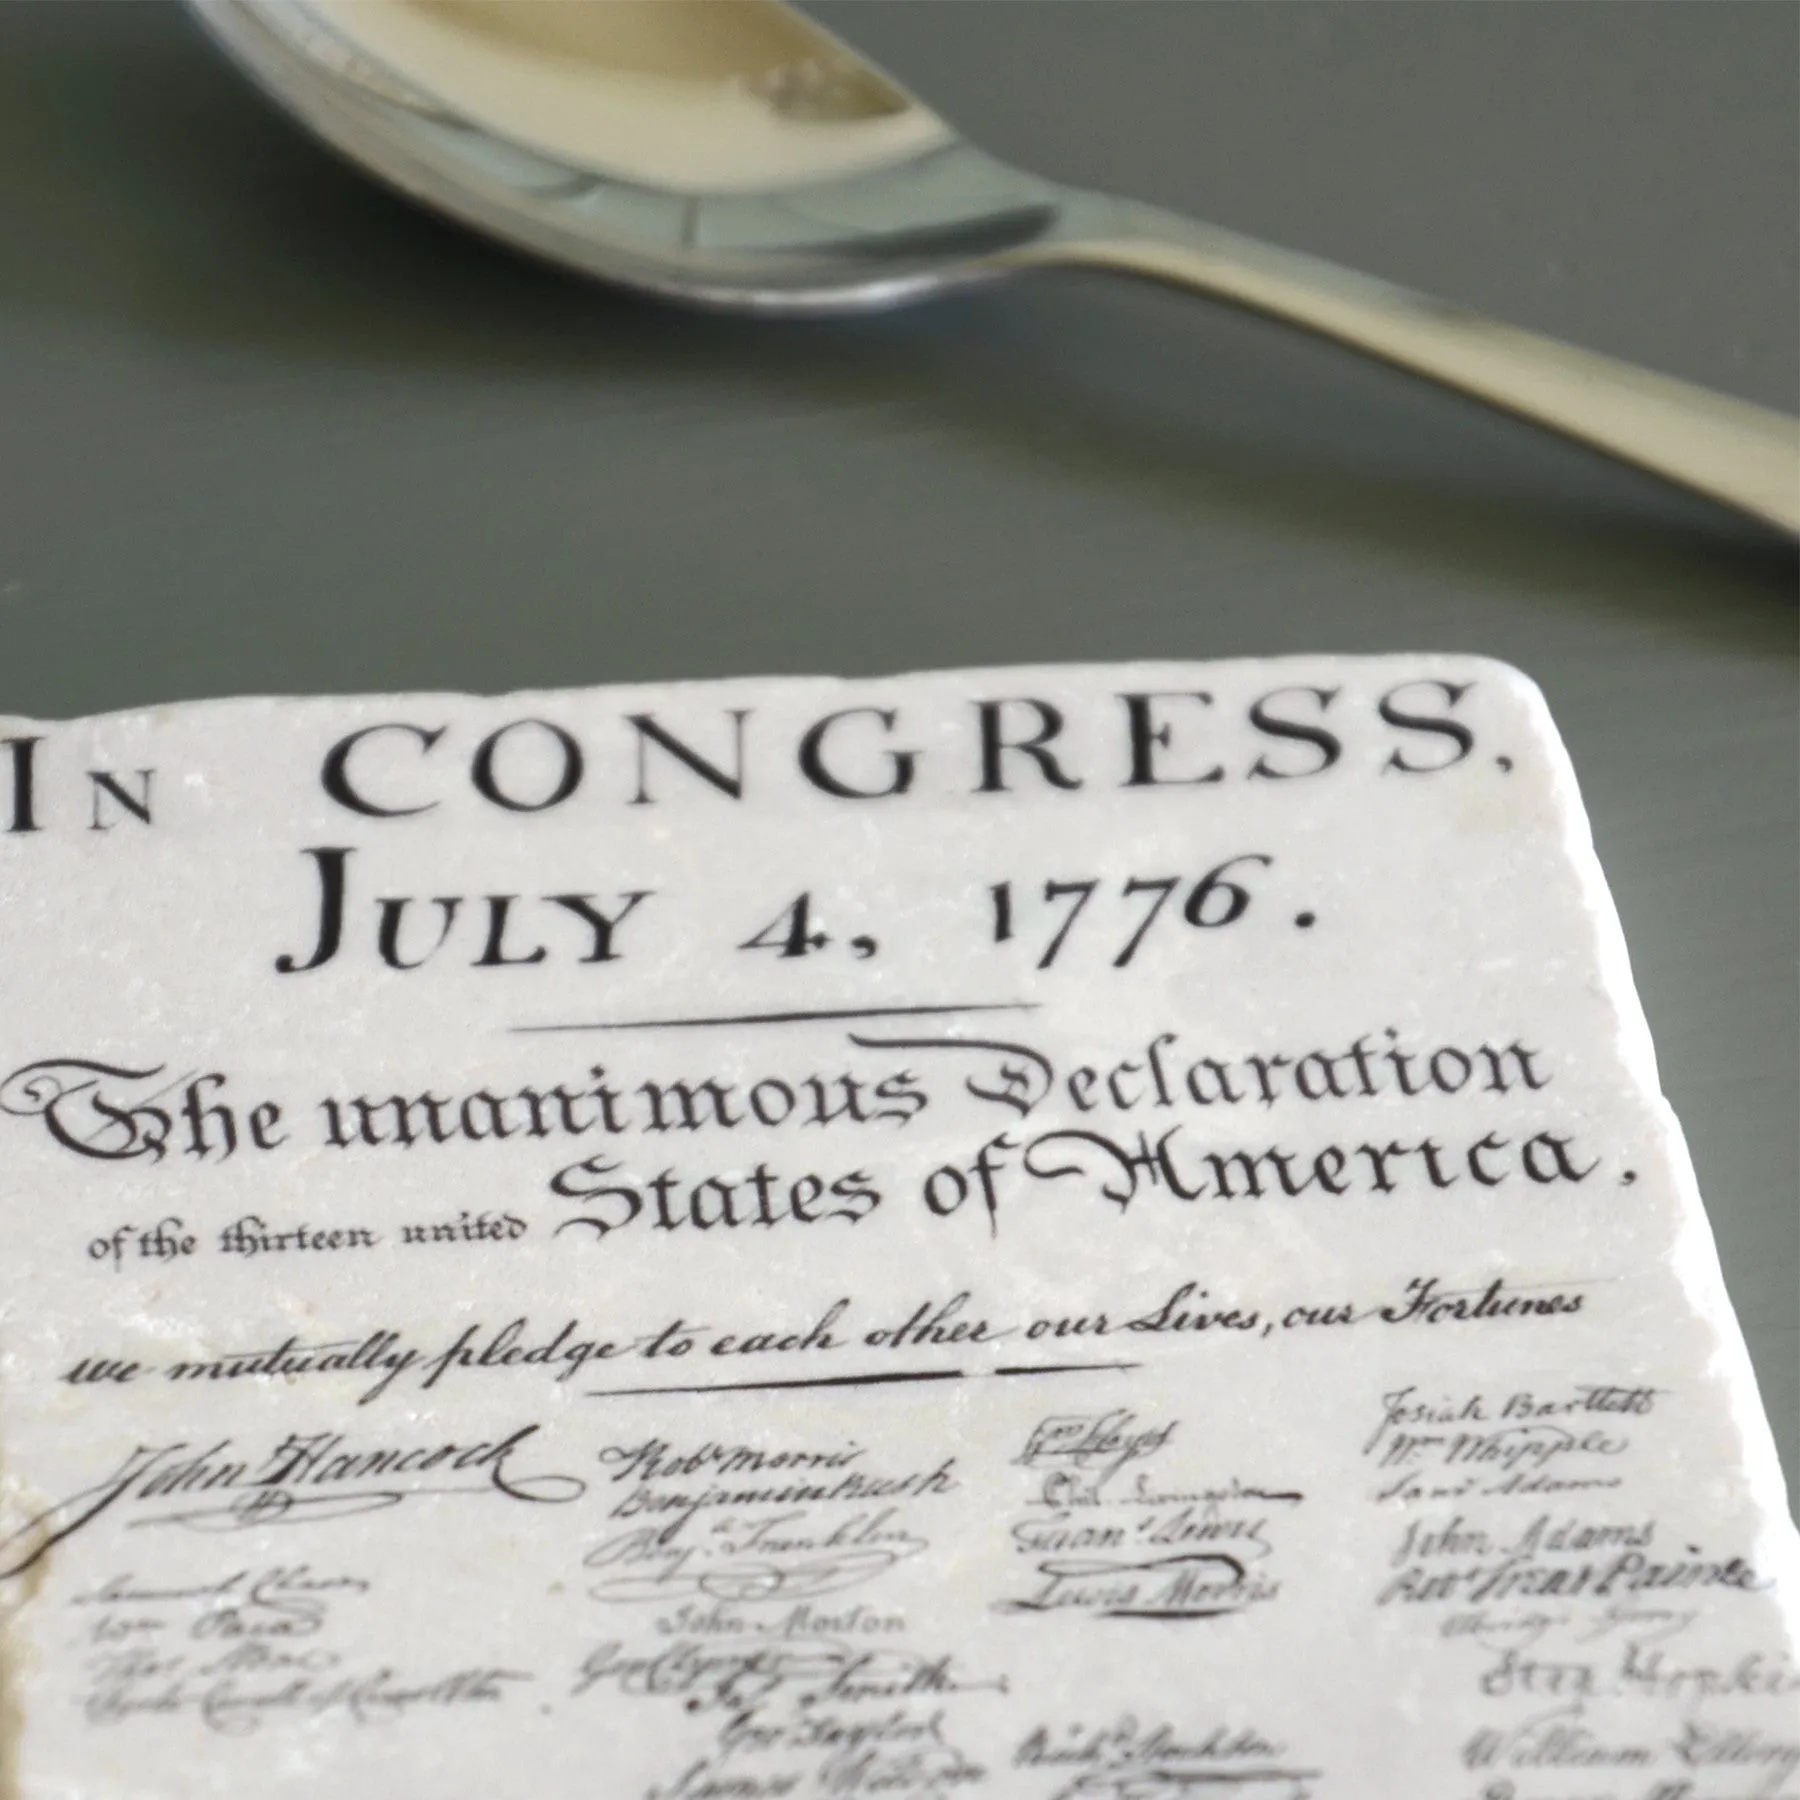 IN CONGRESS,
JULY 4, 1776.
The unanimous Declaration
of the thirteen united States of America.
we mutually pledge to each other our Lives, our Fortunes
John Hancock
Samuel Chase
Wm Paca
Thos Stone
Charles Carroll of Carrollton
Robt Morris
Benjamin Rush
Benja. Franklin
John Morton
Geo Clymer
Jas. Smith
Geo Taylor
James Wilson
Wm Floyd
Phil. Livingston
Frans. Lewis
Lewis Morris
Richd. Stockton
Josiah Bartlett
Wm Whipple
Saml Adams
John Adams
Robt Treat Paine
Elbridge Gerry
Step. Hopkins
William Ellery